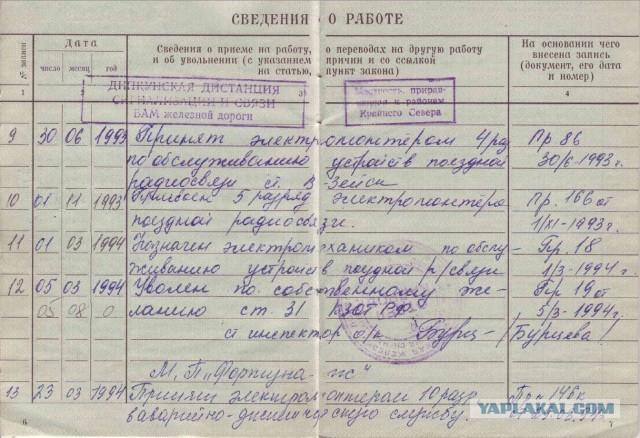 СВЕДЕНИЯ О РАБОТЕ
№ записи
Дата
число месяц год
Сведения о приеме на работу, о переводах на другую работу
и об увольнении (с указанием причин и со ссылкой
на статью, пункт закона)
На основании чего
внесена запись
(документ, его дата
и номер)
1 2 3 4
ДИПКУНСКАЯ ДИСТАНЦИЯ
СИГНАЛИЗАЦИИ И СВЯЗИ
БАМ железной дороги
Местность, прирав-
ненная к районам
Крайнего Севера
9 30 06 1993 Принят электромонтером 4 раз Пр 86
по обслуживанию устройств поездной 30/6-1993г.
радиосвязи ст. В-Зейск
10 01 11 1993 Присвоен 5 разряд электромонтера Пр. 166 от
поездной радиосвязи. 1/XI-1993г.
11 01 03 1994 Назначен электромехаником по обслу- Пр. 18
живанию устройств поездной р/связи 1/3-1994г.
12 05 03 1994 Уволен по собственному же- Пр 19 от
05 08 0 ланию ст. 31 КЗОТ РФ 5/3-1994г.
ст инспектор о/к Бурц- /Бурцева/
М. П "Фортуна-
13 23 03 1994 Принят электромонтером 10 разр.
в аварийно-диспетческую службу.
6 7
YAPLAKAL.COM